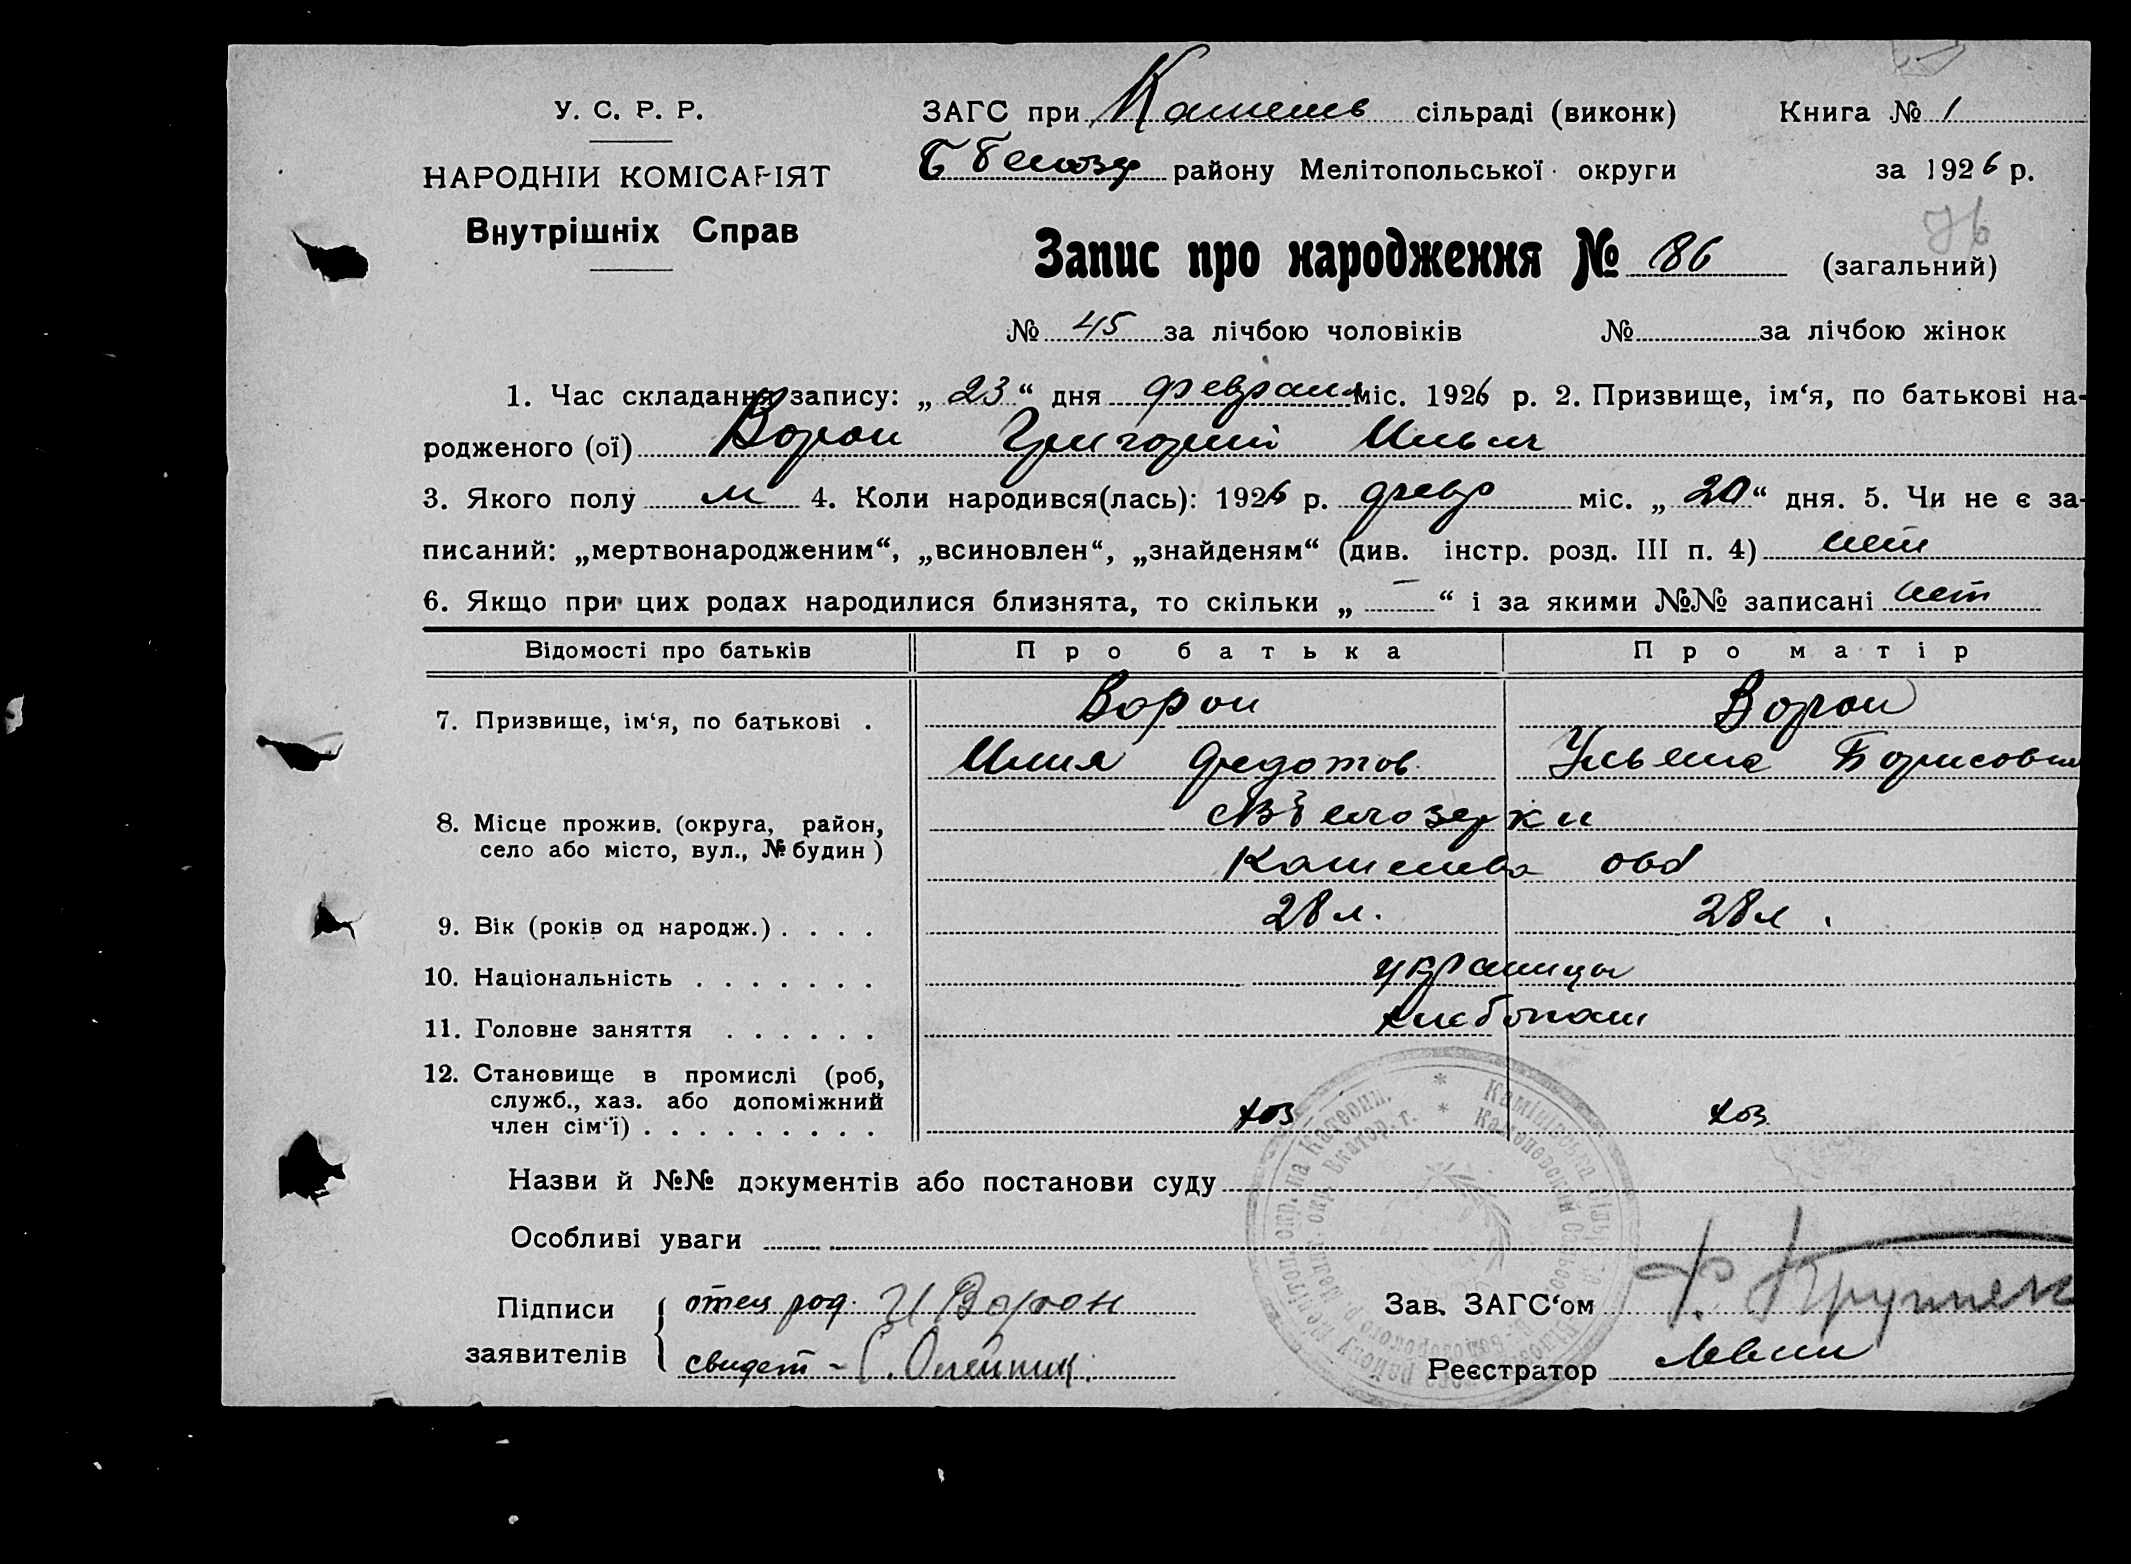 У. С. Р. Р.
НАРОДНІЙ КОМІСАРІЯТ
Внутрішніх Справ
ЗАГС при сільраді (виконк) Книга № 1
району Мелітопольської округи за 1926 р.
76
Запис про народження № 86 (загальний)
№ 45 за лічбою чоловіків № за лічбою жінок
1. Час складання запису: „ 23 “ дня февраля міс. 1926 р. 2. Призвище, ім‘я, по батькові на-
родженого (ої) Ворон Григорий Ильич
3. Якого полу м 4. Коли народився(лась): 1926 р. февр міс. „ 20 “ дня. 5. Чи не є за-
писаний: „мертвонародженим“, „всиновлен“, „знайденям“ (див. інстр. розд. III п. 4) нет
6. Якщо при цих родах народилися близнята, то скільки „ — “ і за якими №№ записані нет
Відомості про батьків Про батька Про матір
7. Призвище, ім‘я, по батькові . Ворон Ворон
Илия Федотов Ульяна Борисовна
8. Місце прожив. (округа, район,
село або місто, вул., № будин )
9. Вік (років од народж.) . . . . 28 л. 28 л.
10. Національність . . . . . . . украинцы
11. Головне заняття . . . . . . хлебопаш
12. Становище в промислі (роб,
служб., хаз. або допоміжний
член сім‘ї) . . . . . . . . . хоз хоз
Назви й №№ документів або постанови суду
Особливі уваги
Підписи
заявителів
отец род. И Ворон
свидет - С. Олейник.
Зав. ЗАГС‘ом
Реєстратор